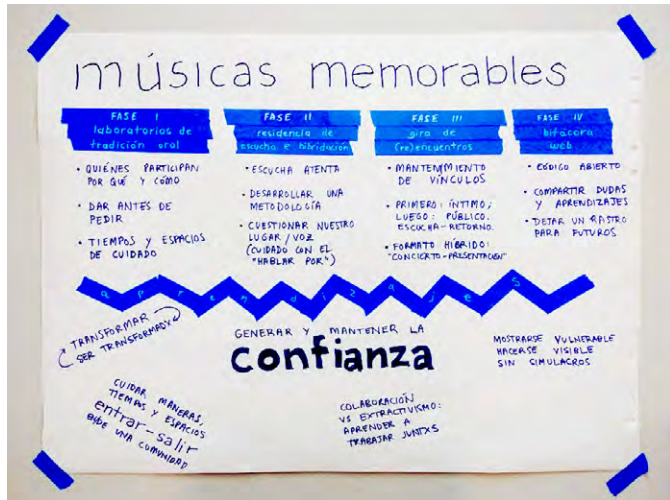 músicas memorables
FASE I
laboratorios de
tradición oral
• QUIÉNES PARTICIPAN
POR QUÉ Y CÓMO
• DAR ANTES DE
PEDIR
• TIEMPOS Y ESPACIOS
DE CUIDADO
FASE II
residencia de
escucha e hibridación
• ESCUCHA ATENTA
• DESARROLLAR UNA
METODOLOGÍA
• CUESTIONAR NUESTRO
LUGAR / VOZ
(CUIDADO CON EL
"HABLAR POR")
FASE III
gira de
(re)encuentros
• MANTENIMIENTO
DE VÍNCULOS
• PRIMERO: ÍNTIMO;
LUEGO: PÚBLICO.
ESCUCHA-RETORNO.
• FORMATO HÍBRIDO:
"CONCIERTO-PRESENTACIÓN"
FASE IV
bitácora
web
• CÓDIGO ABIERTO
• COMPARTIR DUDAS
Y APRENDIZAJES
• DEJAR UN RASTRO
PARA FUTUROS
aprendizajes
TRANSFORMAR
SER TRANSFORMADX
GENERAR Y MANTENER LA
confianza
MOSTRARSE VULNERABLE
HACERSE VISIBLE
SIN SIMULACROS
CUIDAR MANERAS,
TIEMPOS Y ESPACIOS
entrar-salir
UNA COMUNIDAD
COLABORACIÓN
VS EXTRACTIVISMO:
APRENDER A
TRABAJAR JUNTXS